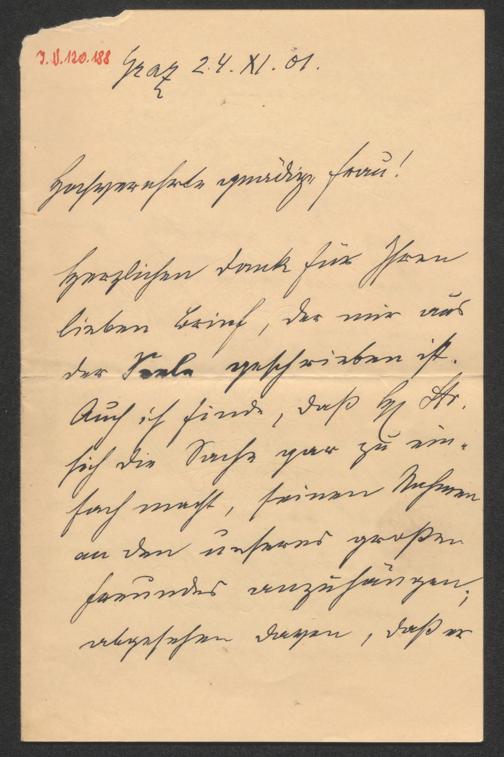 I.N.120.188
Graz 24.XI.01.
Hochverehrte gnädige Frau!
Herzlichen Dank für Ihren
lieben Brief, der mir aus
der Seele geschrieben ist.
Auch ich finde, daß H Str.
sich die Sache gar zu ein-
fach macht, seinen Nahmen
an den unseres großen
Freundes anzuhängen,
abgesehen davon, daß er